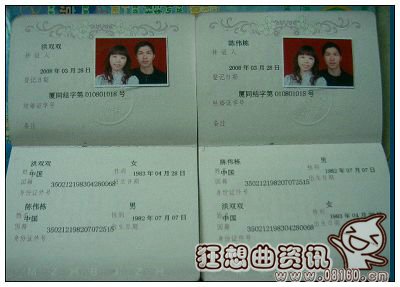 洪双双
持证人
2008 年 03 月 28 日
登记日期
厦同结字第 010801018 号
结婚证字号
备注
洪双双 女
姓名 性别
中国 1983 年 04 月 28 日
国籍 出生日期
350212198304280068
身份证件号
陈伟栋 男
姓名 性别
中国 1982 年 07 月 07 日
国籍 出生日期
350212198207072515
身份证件号
陈伟栋
持证人
2008 年 03 月 28 日
登记日期
厦同结字第 010801018 号
结婚证字号
备注
陈伟栋 男
姓名 性别
中国 1982 年 07 月 07 日
国籍 出生日期
350212198207072515
身份证件号
洪双双 女
姓名 性别
中国 1983 年 04
国籍
350212198304280068
身份证件号
狂想曲资讯
www.081160.cn